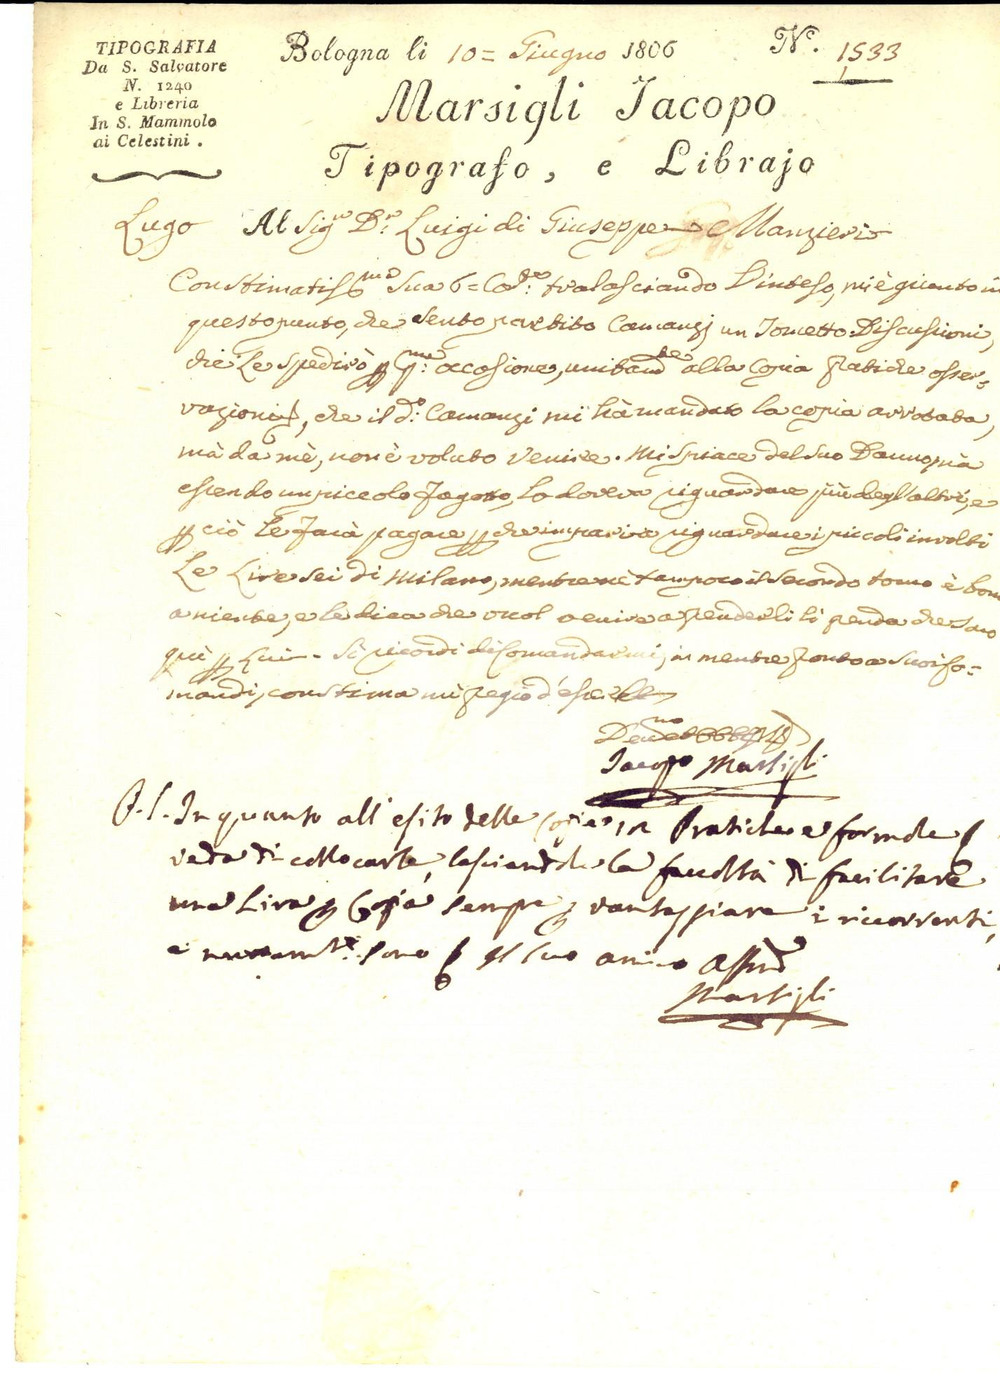 TIPOGRAFIA
Da S. Salvatore
N. 1240
e Libreria
In S. Mammolo
ai Celestini .
Bologna li 10= Giugno 1806
N°. 1533
Marsigli Jacopo
Tipografo, e Librajo
Lugo Al Sigr Dr: Luigi di Giuseppe Manzieri
Con stimatissma Sua 6= Cote: tralasciando l'inteso, mi è giunto in
questo punto, che sento partito Camanzi un Tometto Discussioni,
che Le spedirò occasione, alla Copia Pratiche osser-
vazioni, che il do: Camanzi mi hà mandato la copia
mà da mè, non è voluto venire. Mi spiace del suo Danno, mà
essendo un piccolo Fagotto, lo doveva riguardare più degl'altri, e
ciò Le farà pagare che impari a riguardare i piccoli involti
Le Lire sei di Milano, mentre nè tampoco il secondo tomo è bono
a niente, e le dica che li che sono
quì Lui. Si ricordi di Comandarmi, in mentre pronto a suoi Co-
mandi, con stima mi pregio d'essere
Jacopo Marsigli
P.S. In quanto all'esito delle Copie in Pratiche e formole
veda di collocarle, lasciandole la facoltà di facilitare
una Lira Copia sempre vantaggiare i ricorrenti,
e sono il suo amico Affmo
Marsigli